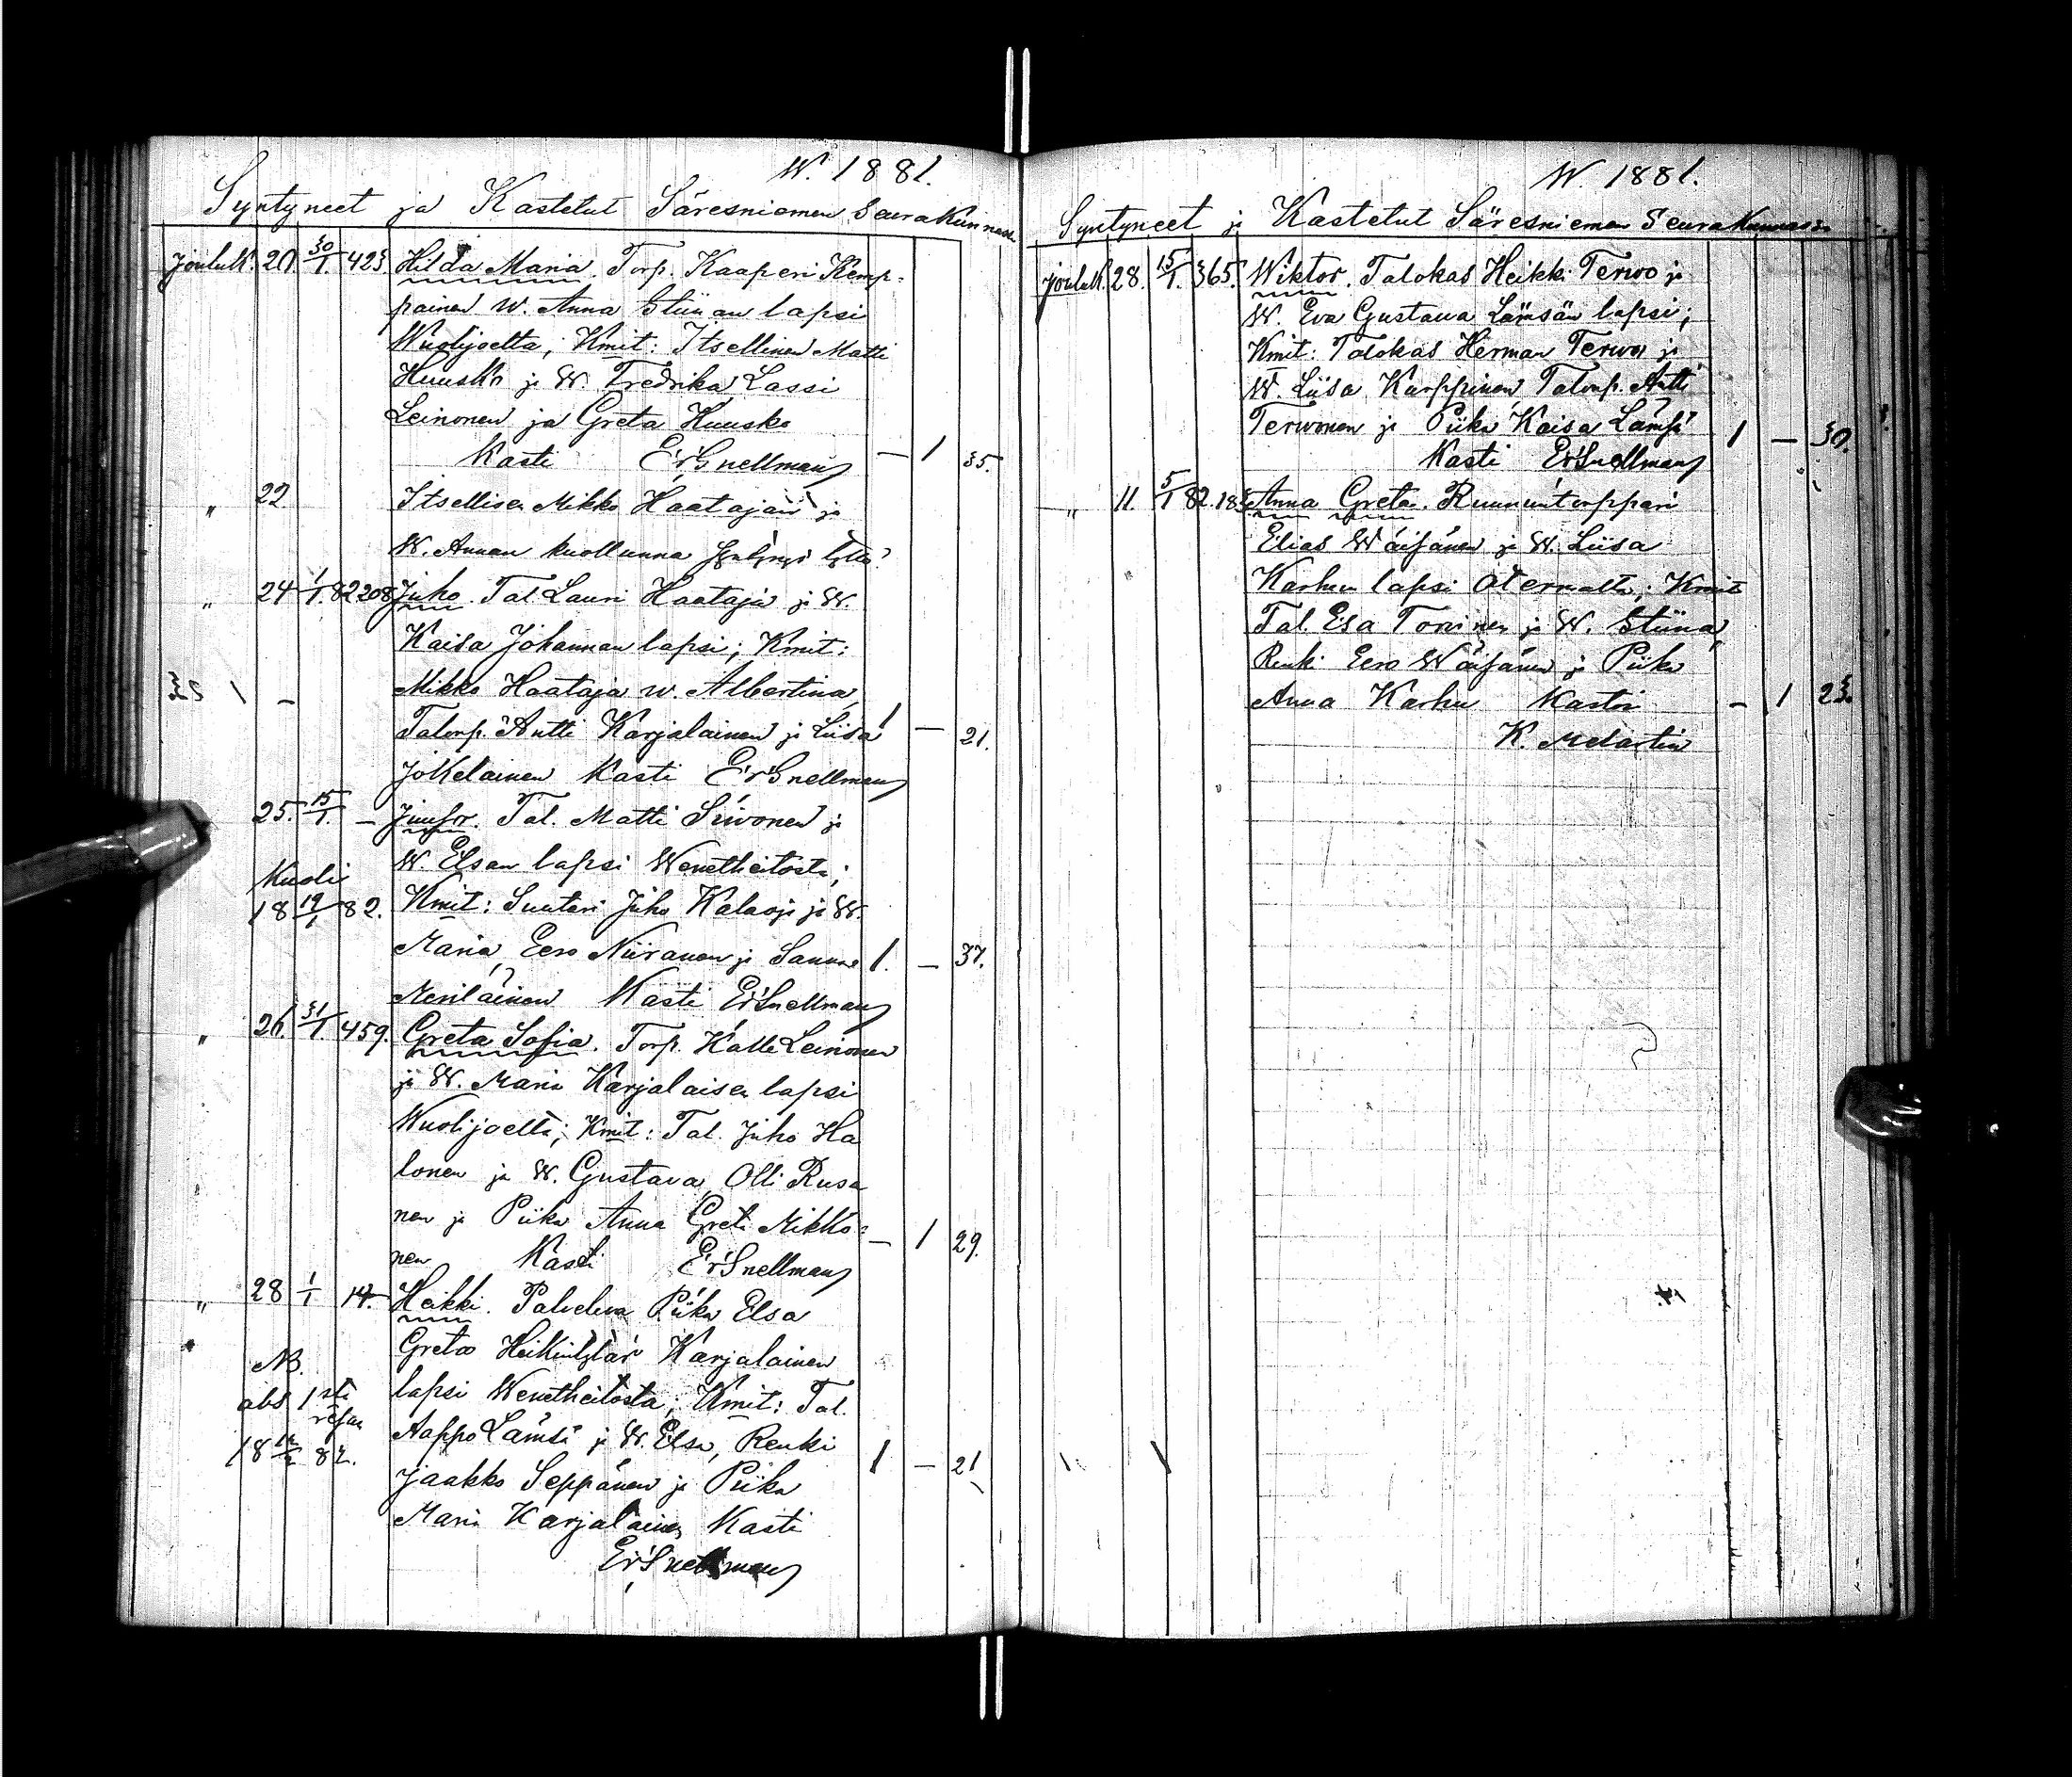 W. 1881.
Syntyneet ja Kastetut Säresniemen Seurakunnassa
Jouluk. 20. 30/1. 423 Hilda Maria. Torp. Kaaperi Kemp-
painen W. Anna Stiinan lapsi
Wuolijoelta; Kmit: Itsellinen Matti
Huusko ja W. Fredrika Lassi
Leinonen ja Greta Huusko
Kasti ErSnellman — 1 35.
" 22. Itsellisen Mikko Haatajan ja
W. Annan kuollunna syntynyt
" 24 1/1. 82 208 Juho Tal. Lauri Haataja ja W.
Kaisa Johannan lapsi; Kmit:
Mikko Haataja w. Albertina,
Talonp. Antti Karjalainen ja Liisa 1 — 21.
Jokelainen Kasti ErSnellman
25. 15/1. — Tal. Matti Siwonen ja
W. Elsan lapsi Wenetheitosta;
Kuoli
18 19/1 82. Kmit: Suutari Juho Kalaoja ja W.
Maria, Eero Niiranen ja Sanna 1. — 37.
Meriläinen Kasti ErSnellman
" 26. 31/1. 459. Greta Sofia. Torp. Kalle Leinonen
ja W. Maria Karjalaisen lapsi
Wuolijoelta; Kmit: Tal. Juho Ha
lonen ja W. Gustava, Olli Rusa
nen ja Piika Anna Greta Mikko-
nen Kasti ErSnellman — 1 29.
" 28 1/1 14. Heikki. Palveleva Piika Elsa
Greta Heikintytär Karjalainen
NB.
abs 1sti lapsi Wenetheitosta; Kmit: Tal.
Aappo Lämsä ja W. Elsa, Renki
18 82. Jaakko Seppänen ja Piika 1 — 21
Maria Karjalainen Kasti
ErSnellman
W. 1881.
Syntyneet ja Kastetut Säresniemen Seurakunnassa
Jouluk. 28. 15/1. 365. Wiktor. Talokas Heikki Terwo ja
W. Eva Gustawa Lämsän lapsi;
Kmit: Talokas Herman Terwo ja
W. Liisa Karppinen Talonp. Antti
Terwonen ja Piika Kaisa Lämsä 1 — 30.
Kasti ErSnellman
" 11. 5/1 82. Anna Greta. Ruununtorppari
Elias Wäisänen ja W. Liisa
Karhun lapsi Otermalta; Kmit
Tal. Esa Toninen ja W. Stiina,
Renki Eero Wäisänen ja Piika
Anna Karhu Kastoi — 1 23.
K. Melartin